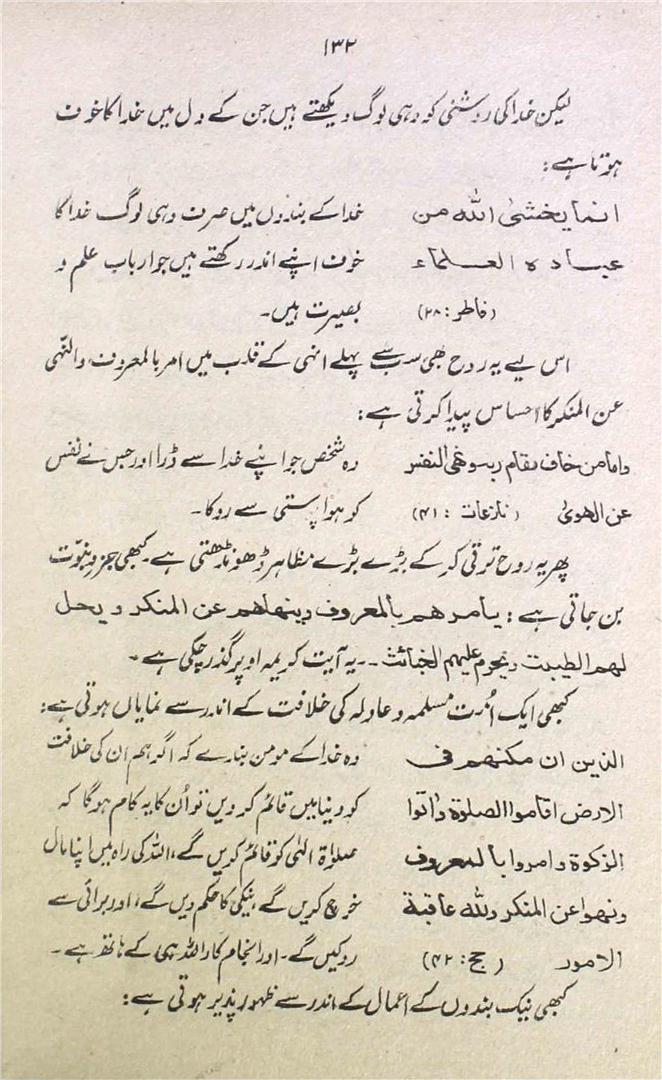 ۱۳۲
لیکن خدا کی روشنی کو وہی لوگ دیکھتے ہیں جن کے دل میں خدا کا خوف
ہوتا ہے:
انما یخشی الله من خدا کے بندوں میں صرف وہی لوگ خدا کا
عبادہ العلماء خوف اپنے اندر رکھتے ہیں جو ارباب علم و
(فاطر: ۲۸) بصیرت ہیں۔
اس لیے یہ روح بھی سب سے پہلے انہی کے قلب میں امر بالمعروف والنہی
عن المنکر کا احساس پیدا کرتی ہے:
واما من خاف مقام ربہ ونہی النفس وہ شخص جو اپنے خدا سے ڈرا اور جس نے نفس
عن الہویٰ (نازعات: ۴۱) کو ہوا پرستی سے روکا۔
پھر یہ روح ترقی کر کے بڑے بڑے مظاہر ڈھونڈھتی ہے۔ کبھی جزو نبوّت
بن جاتی ہے: یامرھم بالمعروف وینھاھم عن المنکر ویحل
لھم الطیبت ویحرم علیھم الخبائث ۔۔ یہ آیت کریمہ اوپر گذر چکی ہے۔
کبھی ایک اُمّت مسلمہ و عادلہ کی خلافت کے اندر سے نمایاں ہوتی ہے:
الذین ان مکنھم فی وہ خدا کے مومن بندے کہ اگر ہم ان کی خلافت
الارض اقاموا الصلوۃ واتوا کو دنیا میں قائم کر دیں تو اُن کا یہ کام ہوگا کہ
الزکوۃ وامروا بالمعروف صلوٰۃ الٰہی کو قائم کریں گے، اللہ کی راہ میں اپنا مال
ونھوا عن المنکر وللہ عاقبۃ خرچ کریں گے، نیکی کا حکم دیں گے، اور برائی سے
الامور (حج: ۴۲) روکیں گے۔ اور انجام کار اللہ ہی کے ہاتھ ہے۔
کبھی نیک بندوں کے اعمال کے اندر سے ظہور پذیر ہوتی ہے: